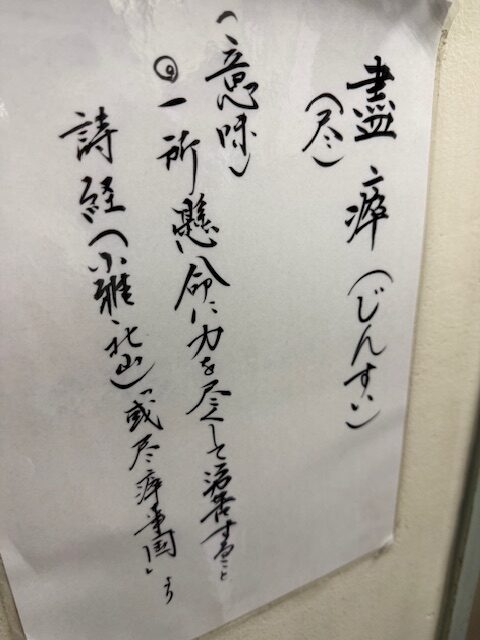 盡瘁(じんすい)
(尽)
(意味)
◎一所懸命に力を尽くして労苦すること
詩経(小雅・北山)「或尽瘁事国」より